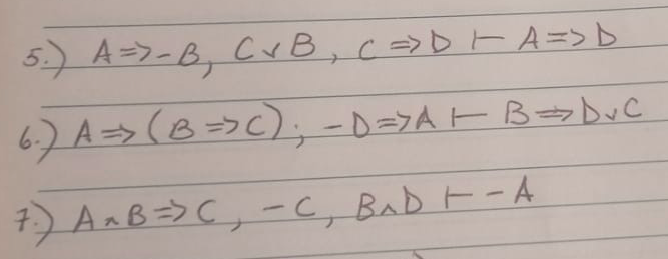 5.) A => -B, C ∨ B, C => D ⊢ A => D
6.) A => (B => C); -D => A ⊢ B => D ∨ C
7.) A ∧ B => C, -C, B ∧ D ⊢ -A